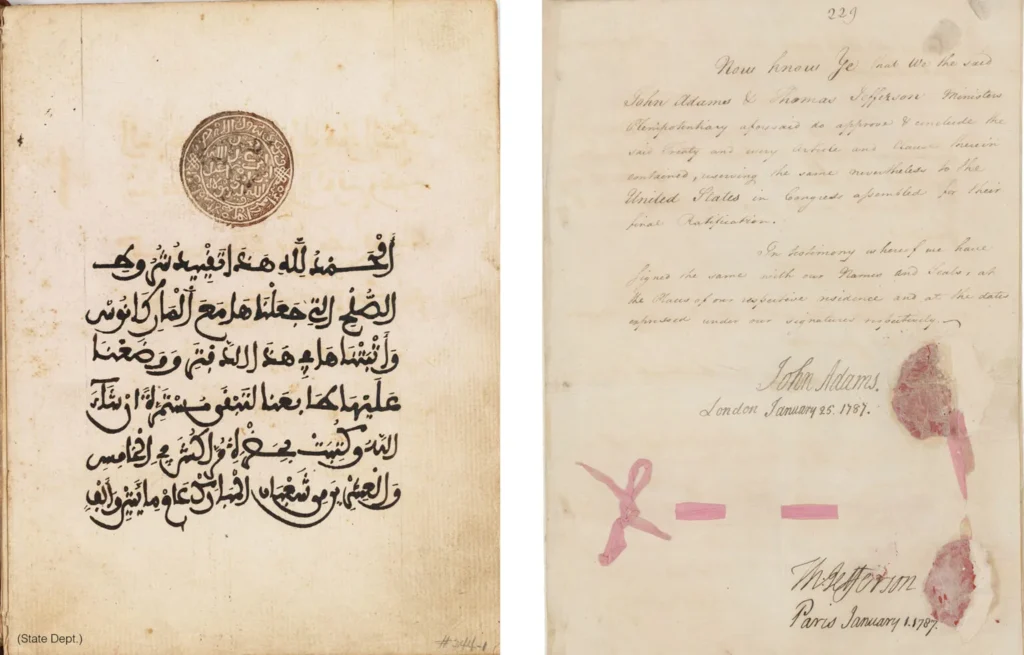 الحمد لله هذا تقييد شروط
الصلح التي جعلناها مع الماركانوس
وأثبتناها في هذا الدفتر ووضعنا
عليها طابعنا لتبقى مستمرة إن شاء
الله وكتبت بحضرة مراكش في الخامس
والعشرين من شعبان المبارك عام مايتين وألف
(State Dept.)
229
Now know Ye that We the said
John Adams & Thomas Jefferson Ministers
Plenipotentiary aforesaid do approve & conclude the
said Treaty and every Article and Clause therein
contained, reserving the same nevertheless to the
United States in Congress assembled for their
final Ratification.
In testimony whereof we have
signed the same with our Names and Seals, at
the Places of our respective residence and at the dates
expressed under our signatures respectively.
John Adams.
London January 25. 1787.
Th: Jefferson
Paris January 1. 1787.